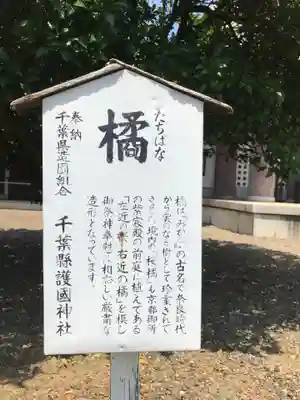 たちばな
橘
橘は「みかん」の古名で奈良時代
から実のなる樹として珍重されて
きました。境内の「桜橘」も京都御所
の紫宸殿の前庭に植えてある
「左近の桜・右近の橘」を模し
御祭神奉慰に相応しい厳粛な
造形となっています。
奉納
千葉県造園組合
千葉縣護國神社